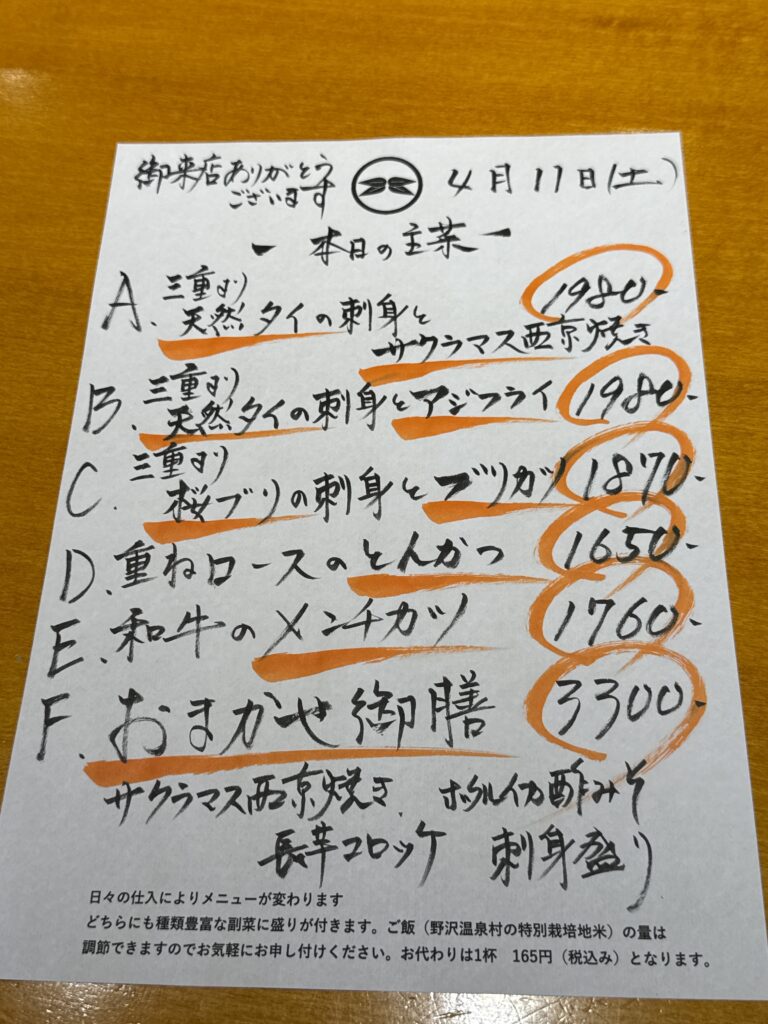 御来店ありがとう
ございます
4月11日(土)
ー 本日の主菜 ー
A. 三重より
天然タイの刺身と
サクラマス西京焼き
1980-
B. 三重より
天然タイの刺身とアジフライ 1980-
C. 三重より
桜ブリの刺身とブリカツ 1870-
D. 重ねロースのとんかつ 1650-
E. 和牛のメンチカツ 1760-
F. おまかせ御膳 3300-
サクラマス西京焼き、ホタルイカ酢みそ
長芋コロッケ 刺身盛り
日々の仕入によりメニューが変わります
どちらにも種類豊富な副菜に盛りが付きます。ご飯（野沢温泉村の特別栽培地米）の量は
調節できますのでお気軽にお申し付けください。お代わりは1杯 165円（税込み）となります。